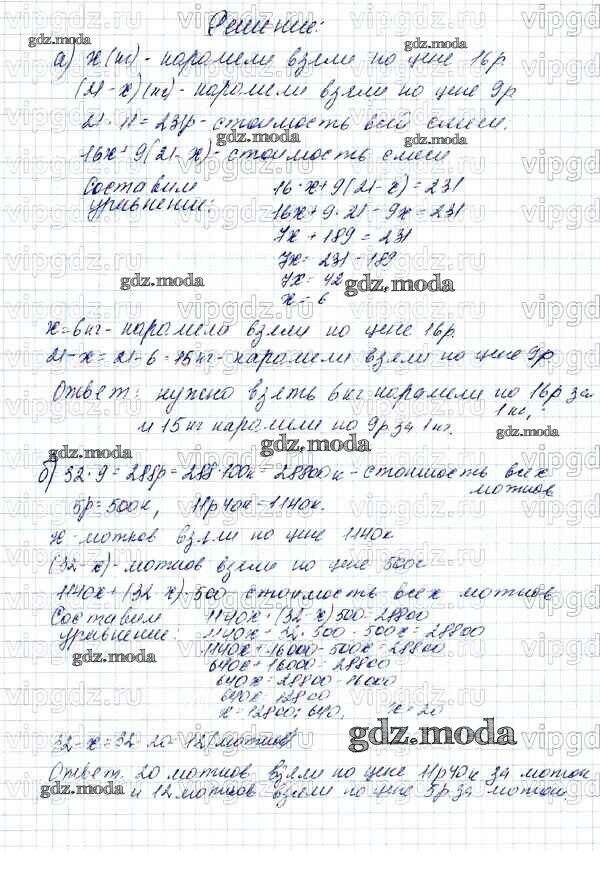 Решение:
а) х (кг) - карамели взяли по цене 16р
(21-х)(кг) - карамели взяли по цене 9р
21·11=231р - стоимость всей смеси,
16х+9(21-х) - стоимость смеси
Составим уравнение:
16·х+9(21-х)=231
16х+9·21-9х=231
7х+189=231
7х=231-189
7х=42
х=6
х=6кг - карамели взяли по цене 16р.
21-х=21-6=15кг - карамели взяли по цене 9р
Ответ: нужно взять 6кг карамели по 16р за 1кг,
и 15кг карамели по 9р за 1кг.
б) 32·9=288р=288·100к=28800к - стоимость всех мотков
5р=500к, 11р40к=1140к.
х - мотков взяли по цене 1140к
(32-х) - мотков взяли по цене 500к
1140х+(32-х)·500 стоимость всех мотков
Составим уравнение:
1140х+(32-х)500=28800
1140х+32·500-500х=28800
1140х+16000-500х=28800
640х+16000=28800
640х=28800-16000
640х=12800
х=12800:640, х=20
32-х=32-20=12(мотков)
Ответ. 20 мотков взяли по цене 11р40к за моток
и 12 мотков взяли по цене 5р за моток.
gdz.moda
vipgdz.ru